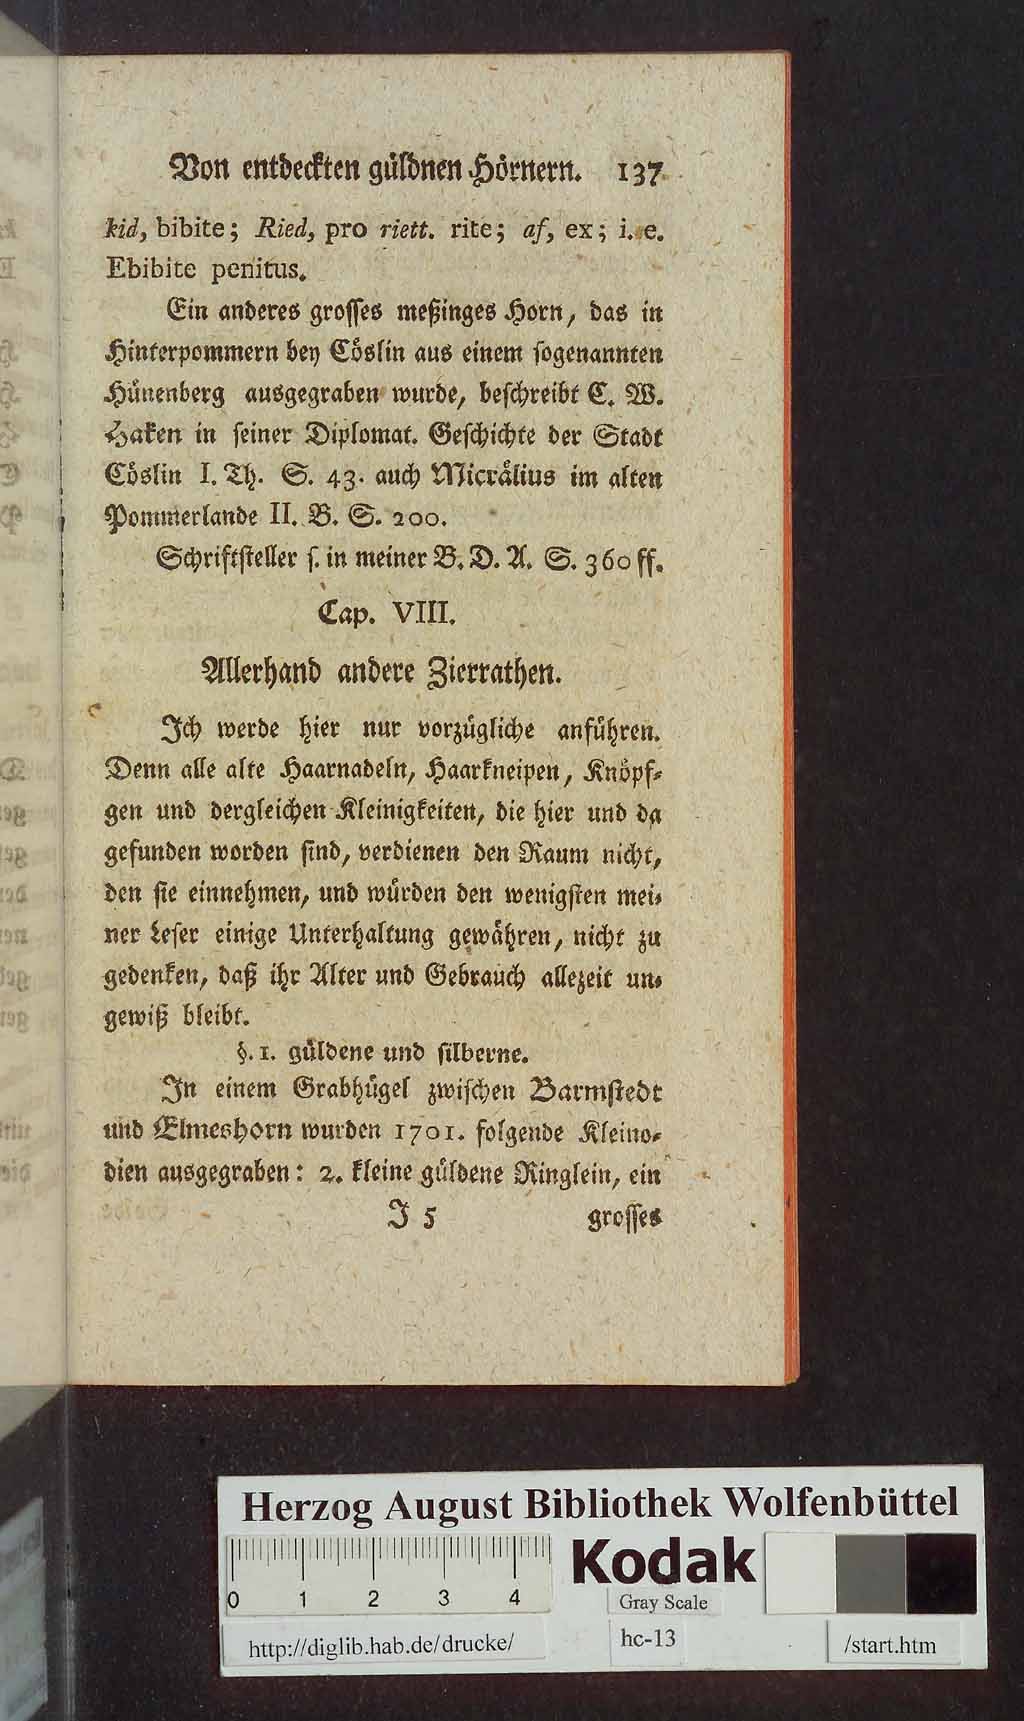 Von entdeckten güldnen Hörnern. 137
kid, bibite; Ried, pro riett. rite; af, ex; i. e.
Ebibite penitus.
Ein anderes grosses meßinges Horn, das in
Hinterpommern bey Cöslin aus einem sogenannten
Hünenberg ausgegraben wurde, beschreibt C. W.
Haken in seiner Diplomat. Geschichte der Stadt
Cöslin I. Th. S. 43. auch Micrälius im alten
Pommerlande II. B. S. 200.
Schriftsteller s. in meiner B. D. A. S. 360 ff.
Cap. VIII.
Allerhand andere Zierrathen.
Ich werde hier nur vorzügliche anführen.
Denn alle alte Haarnadeln, Haarkneipen, Knöpf-
gen und dergleichen Kleinigkeiten, die hier und da
gefunden worden sind, verdienen den Raum nicht,
den sie einnehmen, und würden den wenigsten mei-
ner Leser einige Unterhaltung gewähren, nicht zu
gedenken, daß ihr Alter und Gebrauch allezeit un-
gewiß bleibt.
§. 1. güldene und silberne.
In einem Grabhügel zwischen Barmstedt
und Elmeshorn wurden 1701. folgende Kleino-
dien ausgegraben: 2. kleine güldene Ringlein, ein
J 5 grosses
Herzog August Bibliothek Wolfenbüttel
0 1 2 3 4
Kodak
Gray Scale
http://diglib.hab.de/drucke/
hc-13
/start.htm